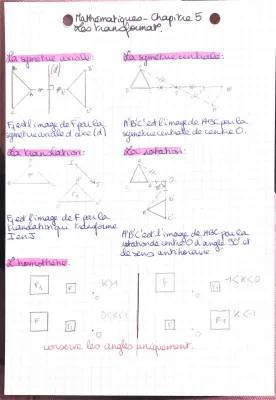 Mathématiques - Chapitre 5
Les transformat°.
La symétrie axiale:
La symétrie centrale:
(d)
F1 est l'image de F par la
symétrie axiale d'axe (d)
A'B'C' est l'image de ABC par la
symétrie centrale de centre O.
La translation:
La rotation:
F1 est l'image de F par la
translation qui transforme
I en J
A'B'C' est l'image de ABC par la
rotation de centre O d'angle 90° et
de sens antihoraire
L'homothétie:
F1
F
k>1
-1<k<0
F
F1
0<k<1
k<-1
conserve les angles uniquement.